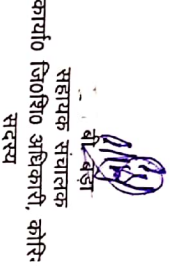 सहायक संचालक
कार्या0 जि0शि0 अधिकारी, कोरि
सदस्य